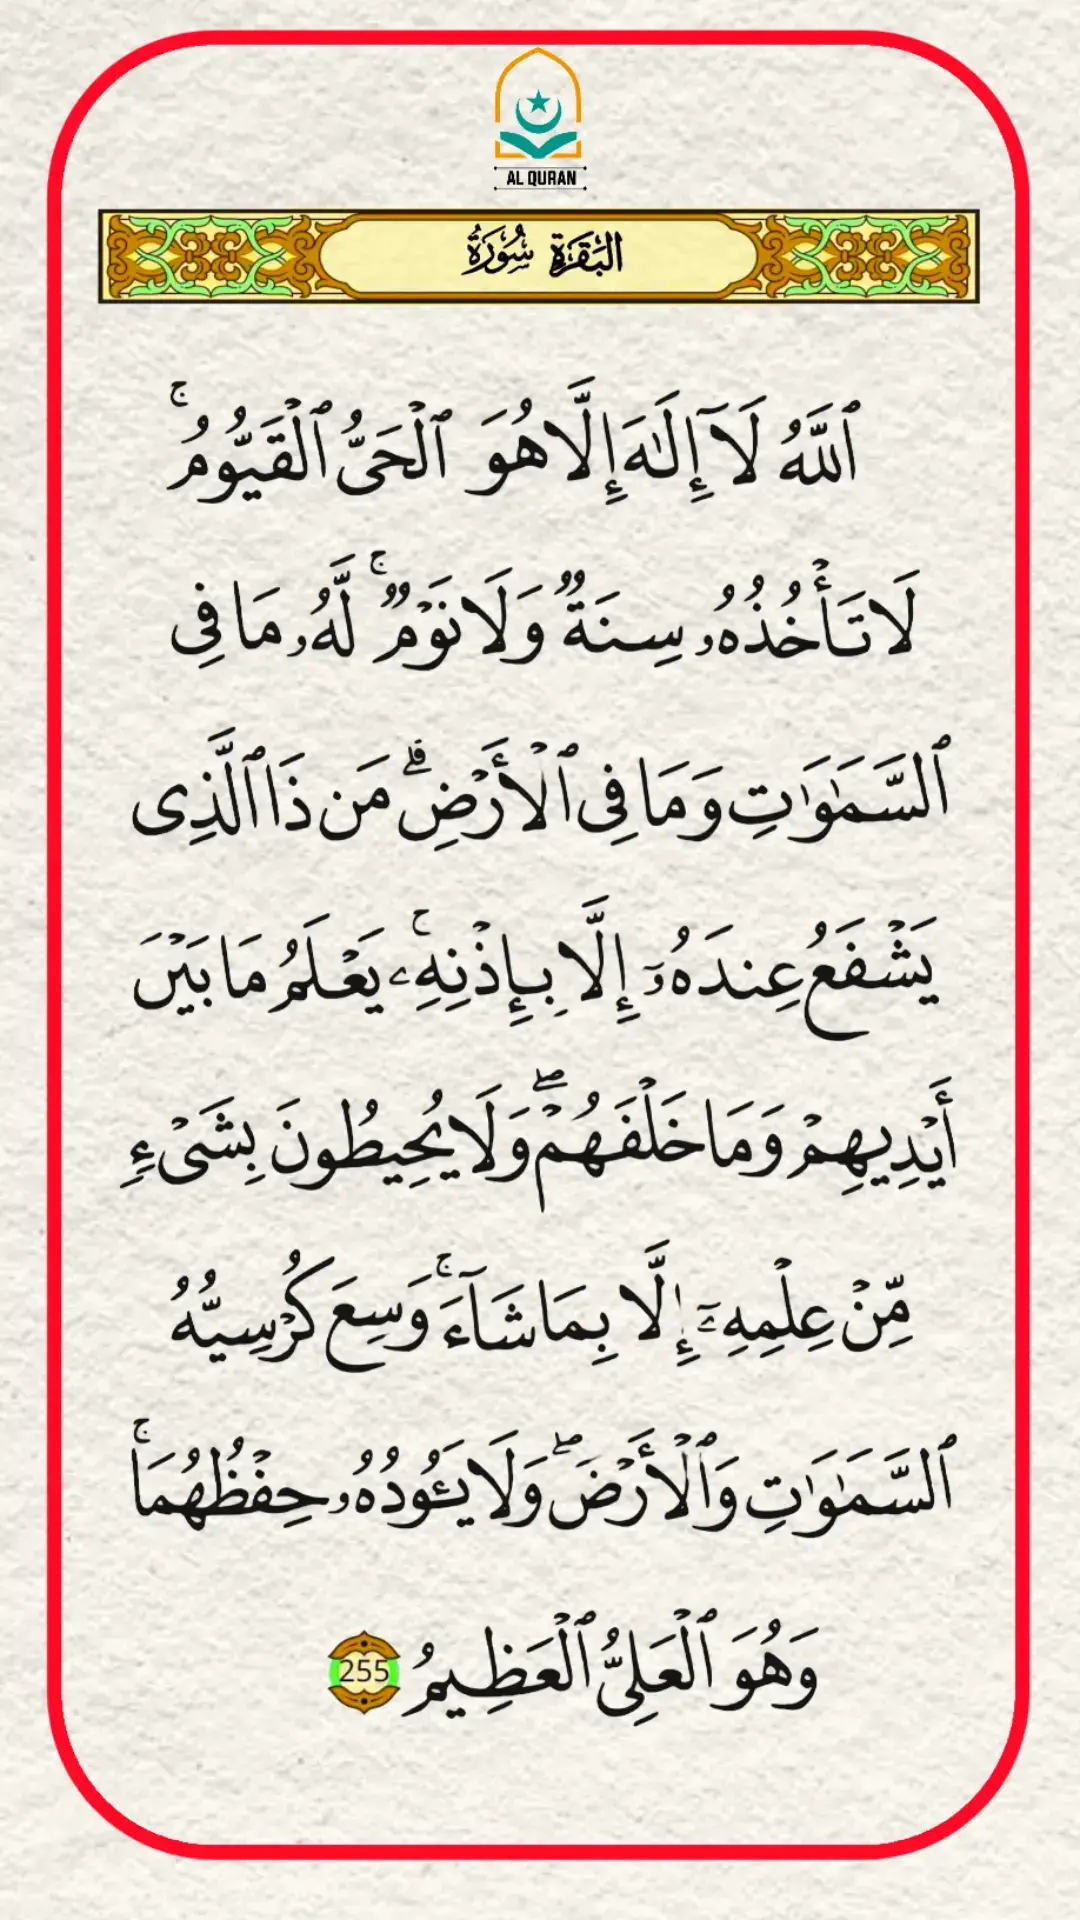 AL QURAN
البَقَرَةِ سُورَةُ
ٱللَّهُ لَآ إِلَـٰهَ إِلَّا هُوَ ٱلْحَىُّ ٱلْقَيُّومُ ۚ
لَا تَأْخُذُهُۥ سِنَةٌ وَلَا نَوْمٌ ۚ لَّهُۥ مَا فِى
ٱلسَّمَـٰوَٰتِ وَمَا فِى ٱلْأَرْضِ ۗ مَن ذَا ٱلَّذِى
يَشْفَعُ عِندَهُۥٓ إِلَّا بِإِذْنِهِۦ ۚ يَعْلَمُ مَا بَيْنَ
أَيْدِيهِمْ وَمَا خَلْفَهُمْ ۖ وَلَا يُحِيطُونَ بِشَىْءٍ
مِّنْ عِلْمِهِۦٓ إِلَّا بِمَا شَآءَ ۚ وَسِعَ كُرْسِيُّهُ
ٱلسَّمَـٰوَٰتِ وَٱلْأَرْضَ ۖ وَلَا يَـُٔودُهُۥ حِفْظُهُمَا ۚ
وَهُوَ ٱلْعَلِىُّ ٱلْعَظِيمُ 255